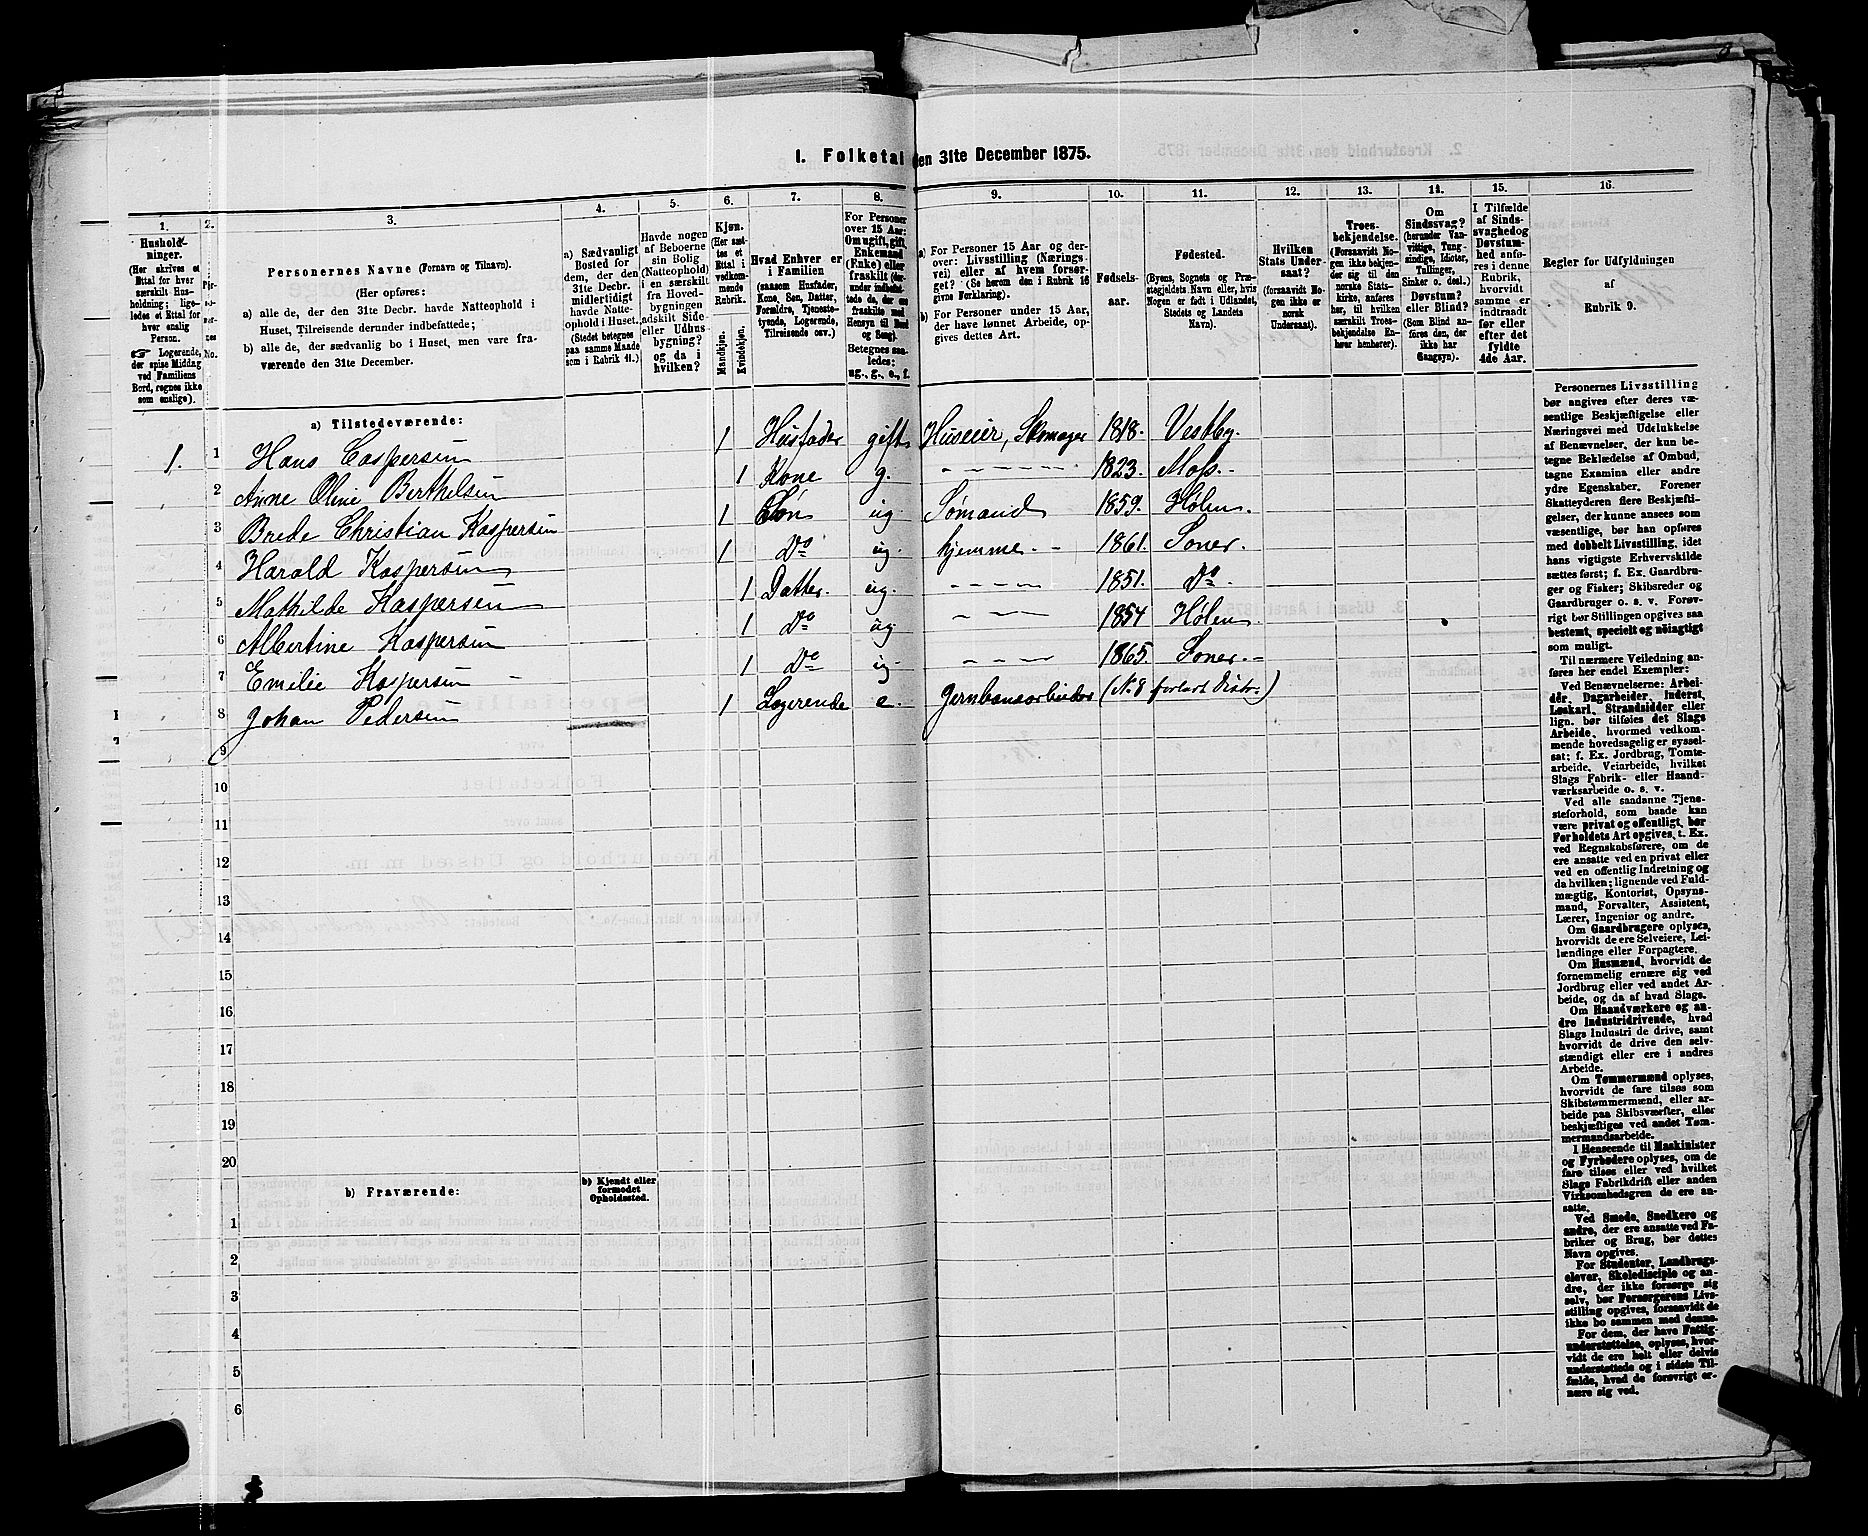 1. Folketal den 31te December 1875.
1.
Hushold-
ninger.
(Her skrives et
Ettal for hver
særskilt Hus-
holdning; lige-
ledes et Ettal for
hver enslig
Person.
☞ Logerende,
der spise Middag
ved Familiens
Bord, regnes ikke
som enslige).
2.
No.
3.
Personernes Navne (Fornavn og Tilnavn).
(Her opføres:
a) alle de, der den 31te Decbr. havde Natteophold i
Huset, Tilreisende derunder indbefattede;
b) alle de, der sædvanlig bo i Huset, men vare fra-
værende den 31te December.
4.
a) Sædvanligt
Bosted for
dem, der den
31te Decbr.
midlertidigt
havde Natte-
ophold i Huset.
(Stedet betegnes
paa samme Maade
som i Rubrik 11.)
5.
Havde nogen
af Beboerne
sin Bolig
(Natteophold)
i en særskilt
fra Hoved-
bygningen
adskilt Side-
eller Udhus-
bygning?
og da i
hvilken?
6.
Kjøn.
(Her sæt-
tes et
Ettal i
vedkom-
mende
Rubrik.
Mandkjøn.
Kvindekjøn.
7.
Hvad Enhver er
i Familien
(saasom Husfader,
Kone, Søn, Datter,
Forældre, Tjeneste-
tyende, Logerende,
Tilreisende osv.)
8.
For Personer
over 15 Aar:
Om ugift, gift,
Enkemand
(Enke) eller
fraskilt (der-
under indbefat-
tede de, der ere
fraskilte med
Hensyn til Bord
og Seng).
Betegnes saa-
ledes:
ug., g., e., f.
9.
a) For Personer 15 Aar og der-
over: Livsstilling (Nærings-
vei) eller af hvem forsør-
get? (Se herom den i Rubrik 16
givne Forklaring).
b) For Personer under 15 Aar,
der have lønnet Arbeide, op-
gives dettes Art.
10.
Fødsels-
aar.
11.
Fødested.
(Byens, Sognets og Præ-
stegjeldets Navn eller, hvis
Nogen er født i Udlandet,
Stedets og Landets
Navn).
12.
Hvilken
Stats Under-
saat?
(forsaavidt No-
gen ikke er
norsk
Undersaat).
13.
Troes-
bekjendelse.
(Forsaavidt No-
gen ikke bekjen-
der sig til den
norske Stats-
kirke, anføres
her, til hvilken
særskilt Troes-
bekjendelse En-
hver henhører).
14.
Om
Sindssvag?
(herunder Van-
vittige, Tung-
sindige, Idioter,
Tullinger,
Sinker o. desl.)
Døvstum?
eller Blind?
(Som Blind an-
føres den, der
ikke har
Gangsyn).
15.
I Tilfælde
af Sinds-
svaghed og
Døvstum-
hed anfø-
res i denne
Rubrik,
hvorvidt
samme er
indtraadt
før eller
efter det
fyldte
4de Aar.
16.
Regler for Udfyldningen
af
Rubrik 9.
a) Tilstedeværende:
1. 1 Hans Caspersen 1 Husfader gift Huseier, Skomager 1818. Vestby.
2 Anne Oline Berthelsen 1 Kone g. - - - - - 1823. Mols. -
3 Brede Christian Kaspersen 1 Søn ug Sømand 1859. Hølen.
4 Harald Kaspersen 1 Do ug. hjemme. - 1861. Soner.
5 Mathilde Kaspersen 1 Datter. ug. - - - - 1851. Do.
6 Albertine Kaspersen 1 Do ug - - - 1854 Hølen.
7 Emilie Kaspersen - 1 Do ug - - - - 1865. Soner. -
8 Johan Pedersen 1 Logerende e. Jernbanearbeider (No. 8 forlort Distr.)
9
10
11
12
13
14
15
16
17
18
19
20
b) Fraværende:
b) Kjendt eller
formodet
Opholdssted.
1
2
3
4
5
6
Personernes Livsstilling
bør angives efter deres væ-
sentlige Beskjæftigelse eller
Næringsvei med Udelukkelse
af Benævnelser, der kun be-
tegne Beklædelse af Ombud,
tagne Examina eller andre
ydre Egenskaber. Forener
Skatteyderen flere Beskjæfti-
gelser, der kunne ansees som
væsentlige, bør han opføres
med dobbelt Livsstilling, idet
hans vigtigste Erhvervskilde
sættes først; f. Ex. Gaardbru-
ger og Fisker; Skibsreder og
Gaardbruger o. s. v. Forøv-
rigt bør Stillingen opgives saa
bestemt, specielt og nøiagtigt
som muligt.
Til nærmere Veiledning an-
føres her endel Exempler:
Ved Benævnelserne: Arbei-
der, Dagarbeider, Inderst,
Løskarl, Strandsidder eller
lign. bør tilføies det Slags
Arbeide, hvormed vedkom-
mende hovedsagelig er syssel-
sat; f. Ex. Jordbrug, Tomte-
arbeide, Veiarbeide, hvilket
Slags Fabrik- eller Haand-
værksarbeide o. s. v.
Ved alle saadanne Tjene-
steforhold, som baade kan
være privat og offentligt, bør
Forholdets Art opgives, t. Ex.
ved Regnskabsførere, om de
ere ansatte ved en privat eller
ved en offentlig Indretning og
da hvilken; lignende ved Fuld-
mægtig, Kontorist, Opsyns-
mand, Forvalter, Assistent,
Lærer, Ingeniør og andre.
Om Gaardbrugere oplyses,
hvorvidt de ere Selveiere, Lei-
lændinge eller Forpagtere.
Om Husmænd, hvorvidt de
fornemmelig ernære sig ved
Jordbrug eller ved andet Ar-
beide, og da af hvad Slags.
Om Haandværkere og an-
dre Industridrivende, hvad
Slags Industri de drive, samt
hvorvidt de drive den selv-
stændigt eller ere i andres
Arbeide.
Om Tømmermænd oplyses,
hvorvidt de fare tilsøs som
Skibstømmermænd, eller ar-
beide paa Skibsværfter, eller
beskjæftiges ved andet Tøm-
mermandsarbeide.
I Henseende til Maskinister
og Fyrbødere oplyses, om de
fare tilsøs eller ved hvilket
Slags Fabrikdrift eller anden
Virksomhedsgren de ere an-
satte.
Ved Smede, Snedkere og
andre, der ere ansatte ved Fa-
briker og Brug, bør dettes
Navn opgives.
For Studenter, Landbrugs-
elever, Skoledisciple og an-
dre, der ikke forsørge sig
selv, bør Forsørgerens Livs-
stilling opgives, forsaavidt de
ikke bo sammen med denne.
For dem, der have Fattig-
understøttelse, oplyses, hvor-
vidt de ere helt eller delvis
understøttede og i sidste Til-
fælde, hvad de forøvrigt er-
nære sig ved.